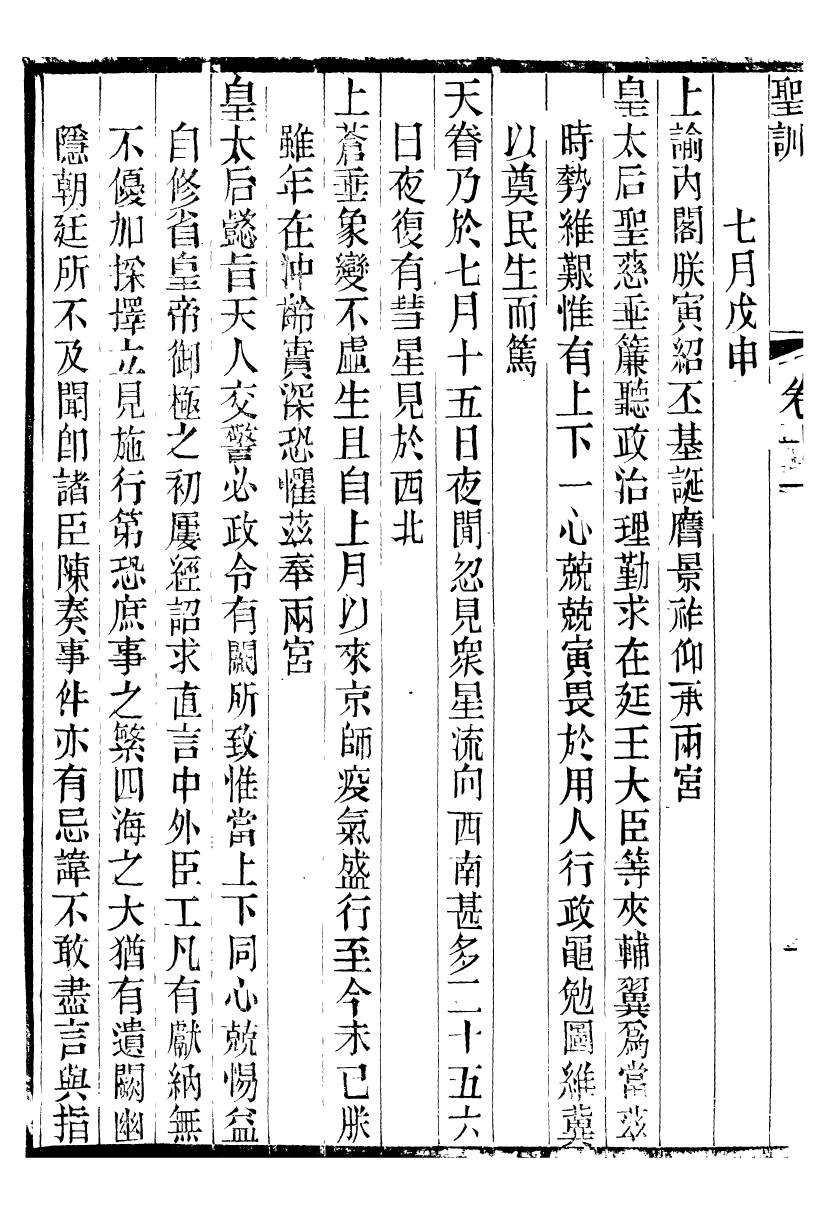 聖訓 卷
七月戊申
上諭內閣朕寅紹丕基誕膺景祚仰承兩宮
皇太后聖慈垂簾聽政治理勤求在廷王大臣等夾輔翼爲當茲
時勢維艱惟有上下一心兢兢寅畏於用人行政黽勉圖維冀
以奠民生而篤
天眷乃於七月十五日夜閒忽見衆星流向西南甚多二十五六
日夜復有彗星見於西北
上蒼垂象變不虛生且自上月以來京師疫氣盛行至今未已朕
雖年在沖齡實深恐懼茲奉兩宮
皇太后懿旨天人交警必政令有闕所致惟當上下同心兢惕益
自修省皇帝御極之初屢經詔求直言中外臣工凡有獻納無
不優加採擇立見施行第恐庶事之繁四海之大猶有遺闕幽
隱朝廷所不及聞卽諸臣陳奏事件亦有忌諱不敢盡言與指